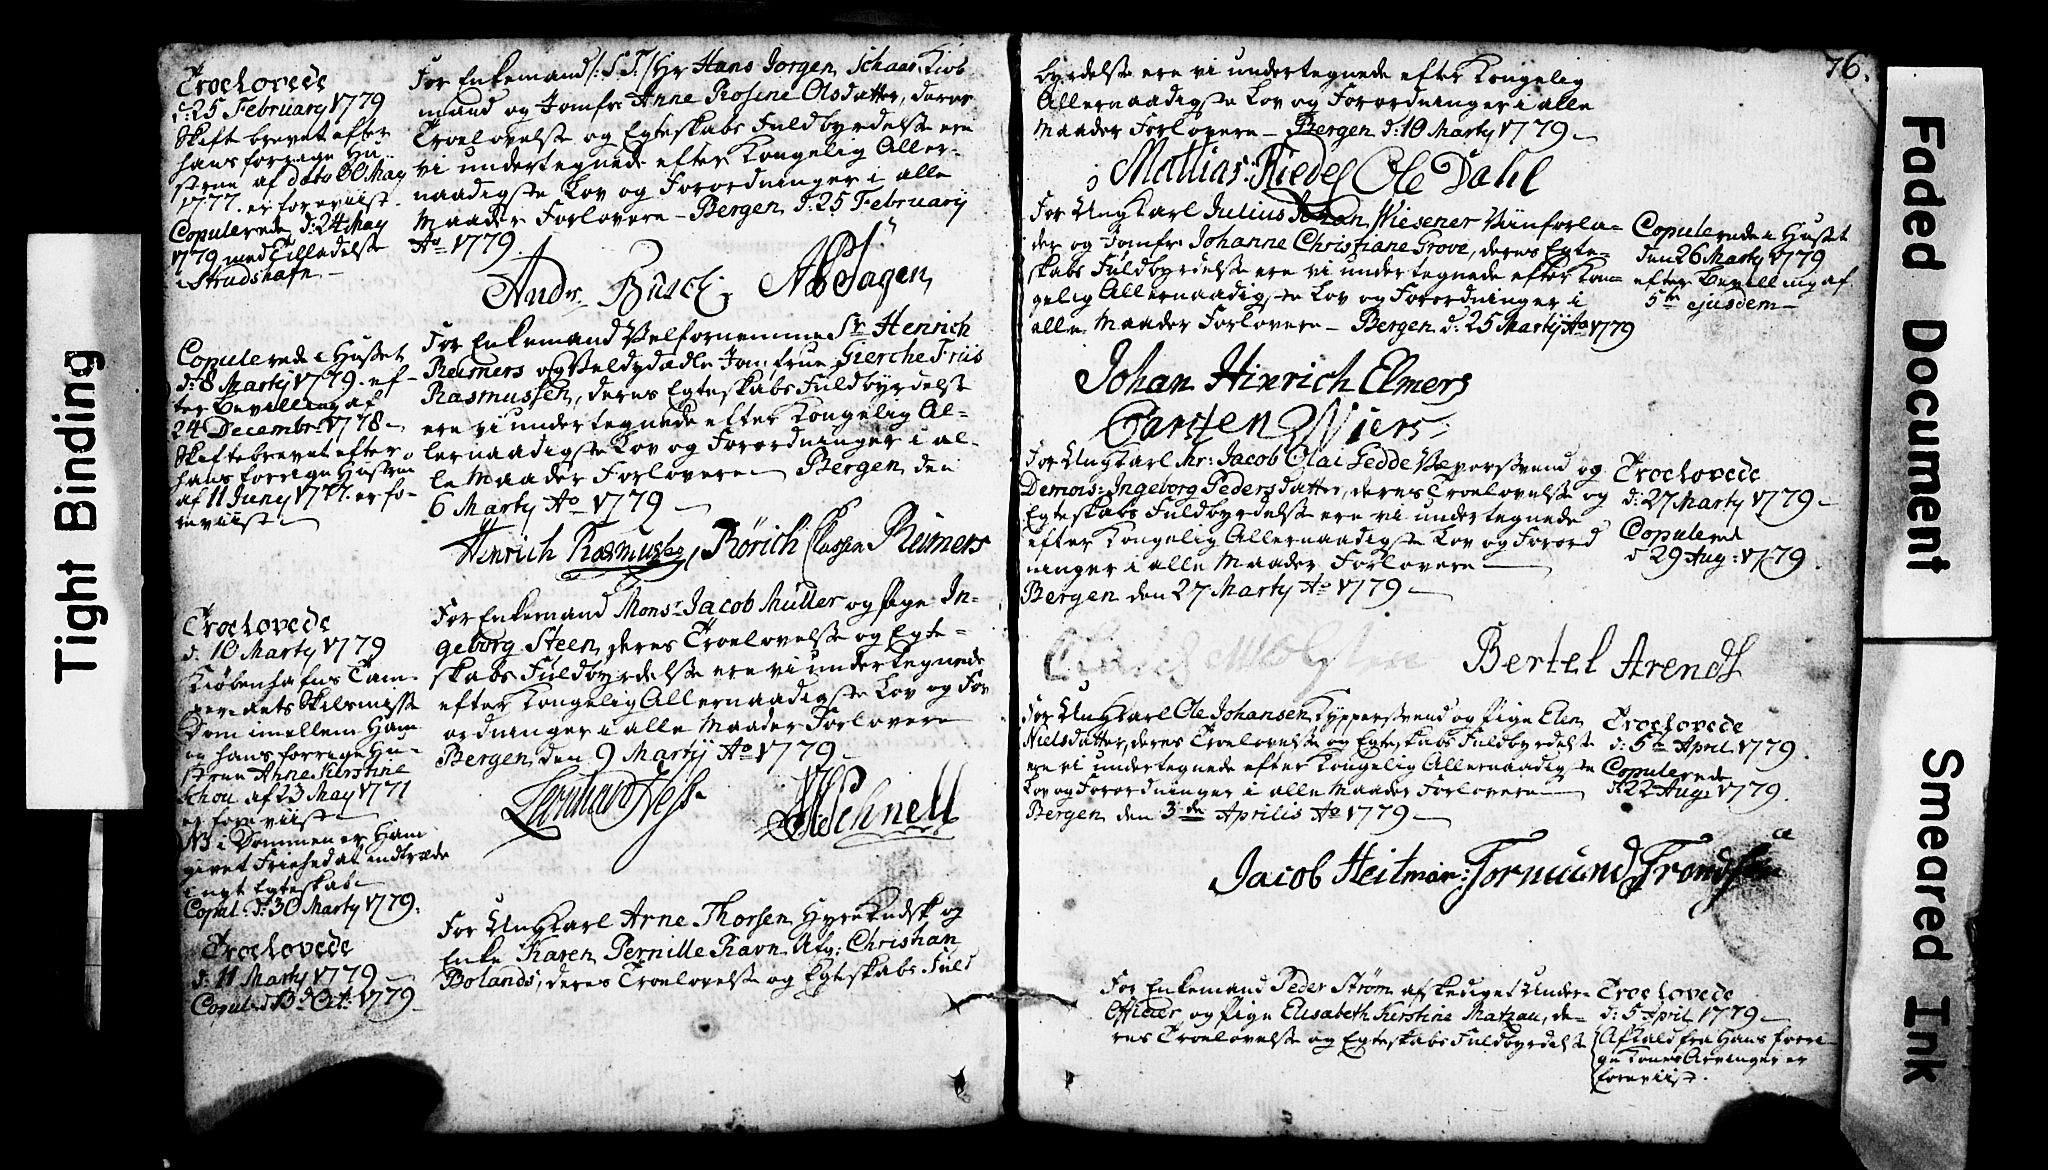 Troelovede
d: 25 February 1779
Skift brevet efter
hans forrige Hu-
strue af dato 30 May
1777. er foreviist.
Copulerede d: 24 May
1779 med Tilladelse
i Strudshafn.
For Enkemand /: S. T. / Hr Hans Jorgen Schaar Kiøb
mand og Jomfr Anne Rosine Olsdatter, deres
Troelovelse og Egteskabs Fuldbyrdelse ere
vi undertegnede efter Kongelig Aller-
naadigste Lov og Forordninger i alle
Maader Forlovere – Bergen d: 25 February
Ao 1779.
Andr Busch
Copulerede i Huset
d: 8 Marty 1779. ef-
ter Bevilling af
24 Decembr: 1778
Skiftebrevet efter
hans forrige Hustrue
af 11 Juny 1777. er fo-
reviist
For Enkemand Velfornemme Sr Henrich
Reimers og Veldydædle Jomfrue Gierche Friis
Rasmussen, deres Egteskabs Fuldbyrdelse
ere vi undertegnede efter Kongelig Al-
lernaadigste Lov og Forordninger i al-
le Maader Forlovere – Bergen den
6 Marty Ao 1779
Hinrich Rasmusen Rörich Classen Reimers
Troelovede
d: 10 Marty 1779
Kiøbenhafns Tam-
per-Rets Skilsmisse
Dom imellem Ham
og hans forrige Hu-
strue Anne Kirstine
Schou af 23 May 1771
er foreviist
NB i Dommen er Ham
givet Friehed at indtræde
i nyt Egteskab
Copul: d: 30 Marty 1779.
For Enkemand Monsr Jacob Müller og Pige In-
geborg Steen, deres Troelovelse og Egte-
skabs Fuldbyrdelse ere vi undertegnede
efter Kongelig Allernaadigste Lov og For
ordninger i alle Maader Forlovere
Bergen den 9 Martij Ao 1779
Schnell
Troelovede
d: 11 Marty 1779
Copul: d 13 Oct: 1779
For Ung Karl Arne Thorsen Hyrekudsk og
Enke Karen Pernille Ravn Afg: Christian
Bolands, deres Troelovelse og Egteskabs Fuld
76.
byrdelse ere vi undertegnede efter Kongelig
Allernaadigste Lov og Forordninger i alle
Maader Forlovere – Bergen d: 10 Marty 1779
Mattias Riedel Ole Dahl
For Ung Karl Julius Johan Wiesener Viinforla-
der og Jomfr Johanne Christiane Grove, deres Egte-
skabs Fuldbyrdelse ere vi undertegnede efter Kon-
gelig Allernaadigste Lov og Forordninger i
alle Maader Forlovere – Bergen d: 25 Martij Ao 1779
Copulerede i Huset
den 26 Marty 1779
efter Bevilling af
5te ejusdem
Johan Hinrich Elmers
Carsten Wiers
For Ung Karl Mr: Jacob Olai Gedde Væversvend og
Demois: Ingeborg Pedersdatter, deres Troelovelse og
Egteskabs Fuldbyrdelse ere vi undertegnede
efter Kongelig Allernaadigste Lov og Forord
ninger i alle Maader Forlovere
Bergen den 27 Marty Ao 1779
Troelovede
d: 27 Marty 1779
Copulered
d 29 Aug: 1779.
Bertel Arends
For Ung Karl Ole Johansen Kyppersvend og Pige Elen
Nielsdatter, deres Troelovelse og Egteskabs Fuldbyrdelse
ere vi undertegnede efter Kongelig Allernaadigste
Lov og Forordninger i alle Maader Forlovere
Bergen den 3de Aprilis Ao 1779
Troelovede
d: 5te April 1779.
Copulerede
d 22 Aug: 1779.
Jacob Heitman: Tormund Trondsen
For Enkemand Peder Strøm afskediget Under-
Officier, og Pige Elisabeth Kirstine Matzau, de-
res Troelovelse og Egteskabs Fuldbyrdelse
Troelovede
d: 5 April 1779
Afkald fra Hans forri-
ge Kones Arvinger er
foreviist.
Tight Binding
Faded Document
Smeared Ink